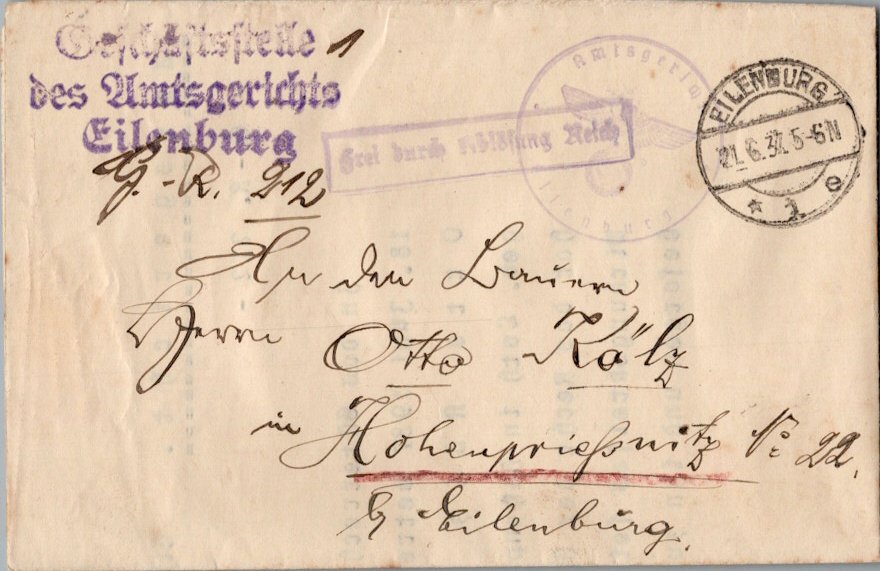 Geschäftsstelle
des Amtsgerichts
Eilenburg
1
212
Frei durch Ablösung Reich
Amtsgericht
Eilenburg
EILENBURG
21.6.37.5-6N
* 1 e
An den Bauern
Herrn Otto Kölz
in Hohenprießnitz No 22.
b/ Eilenburg.